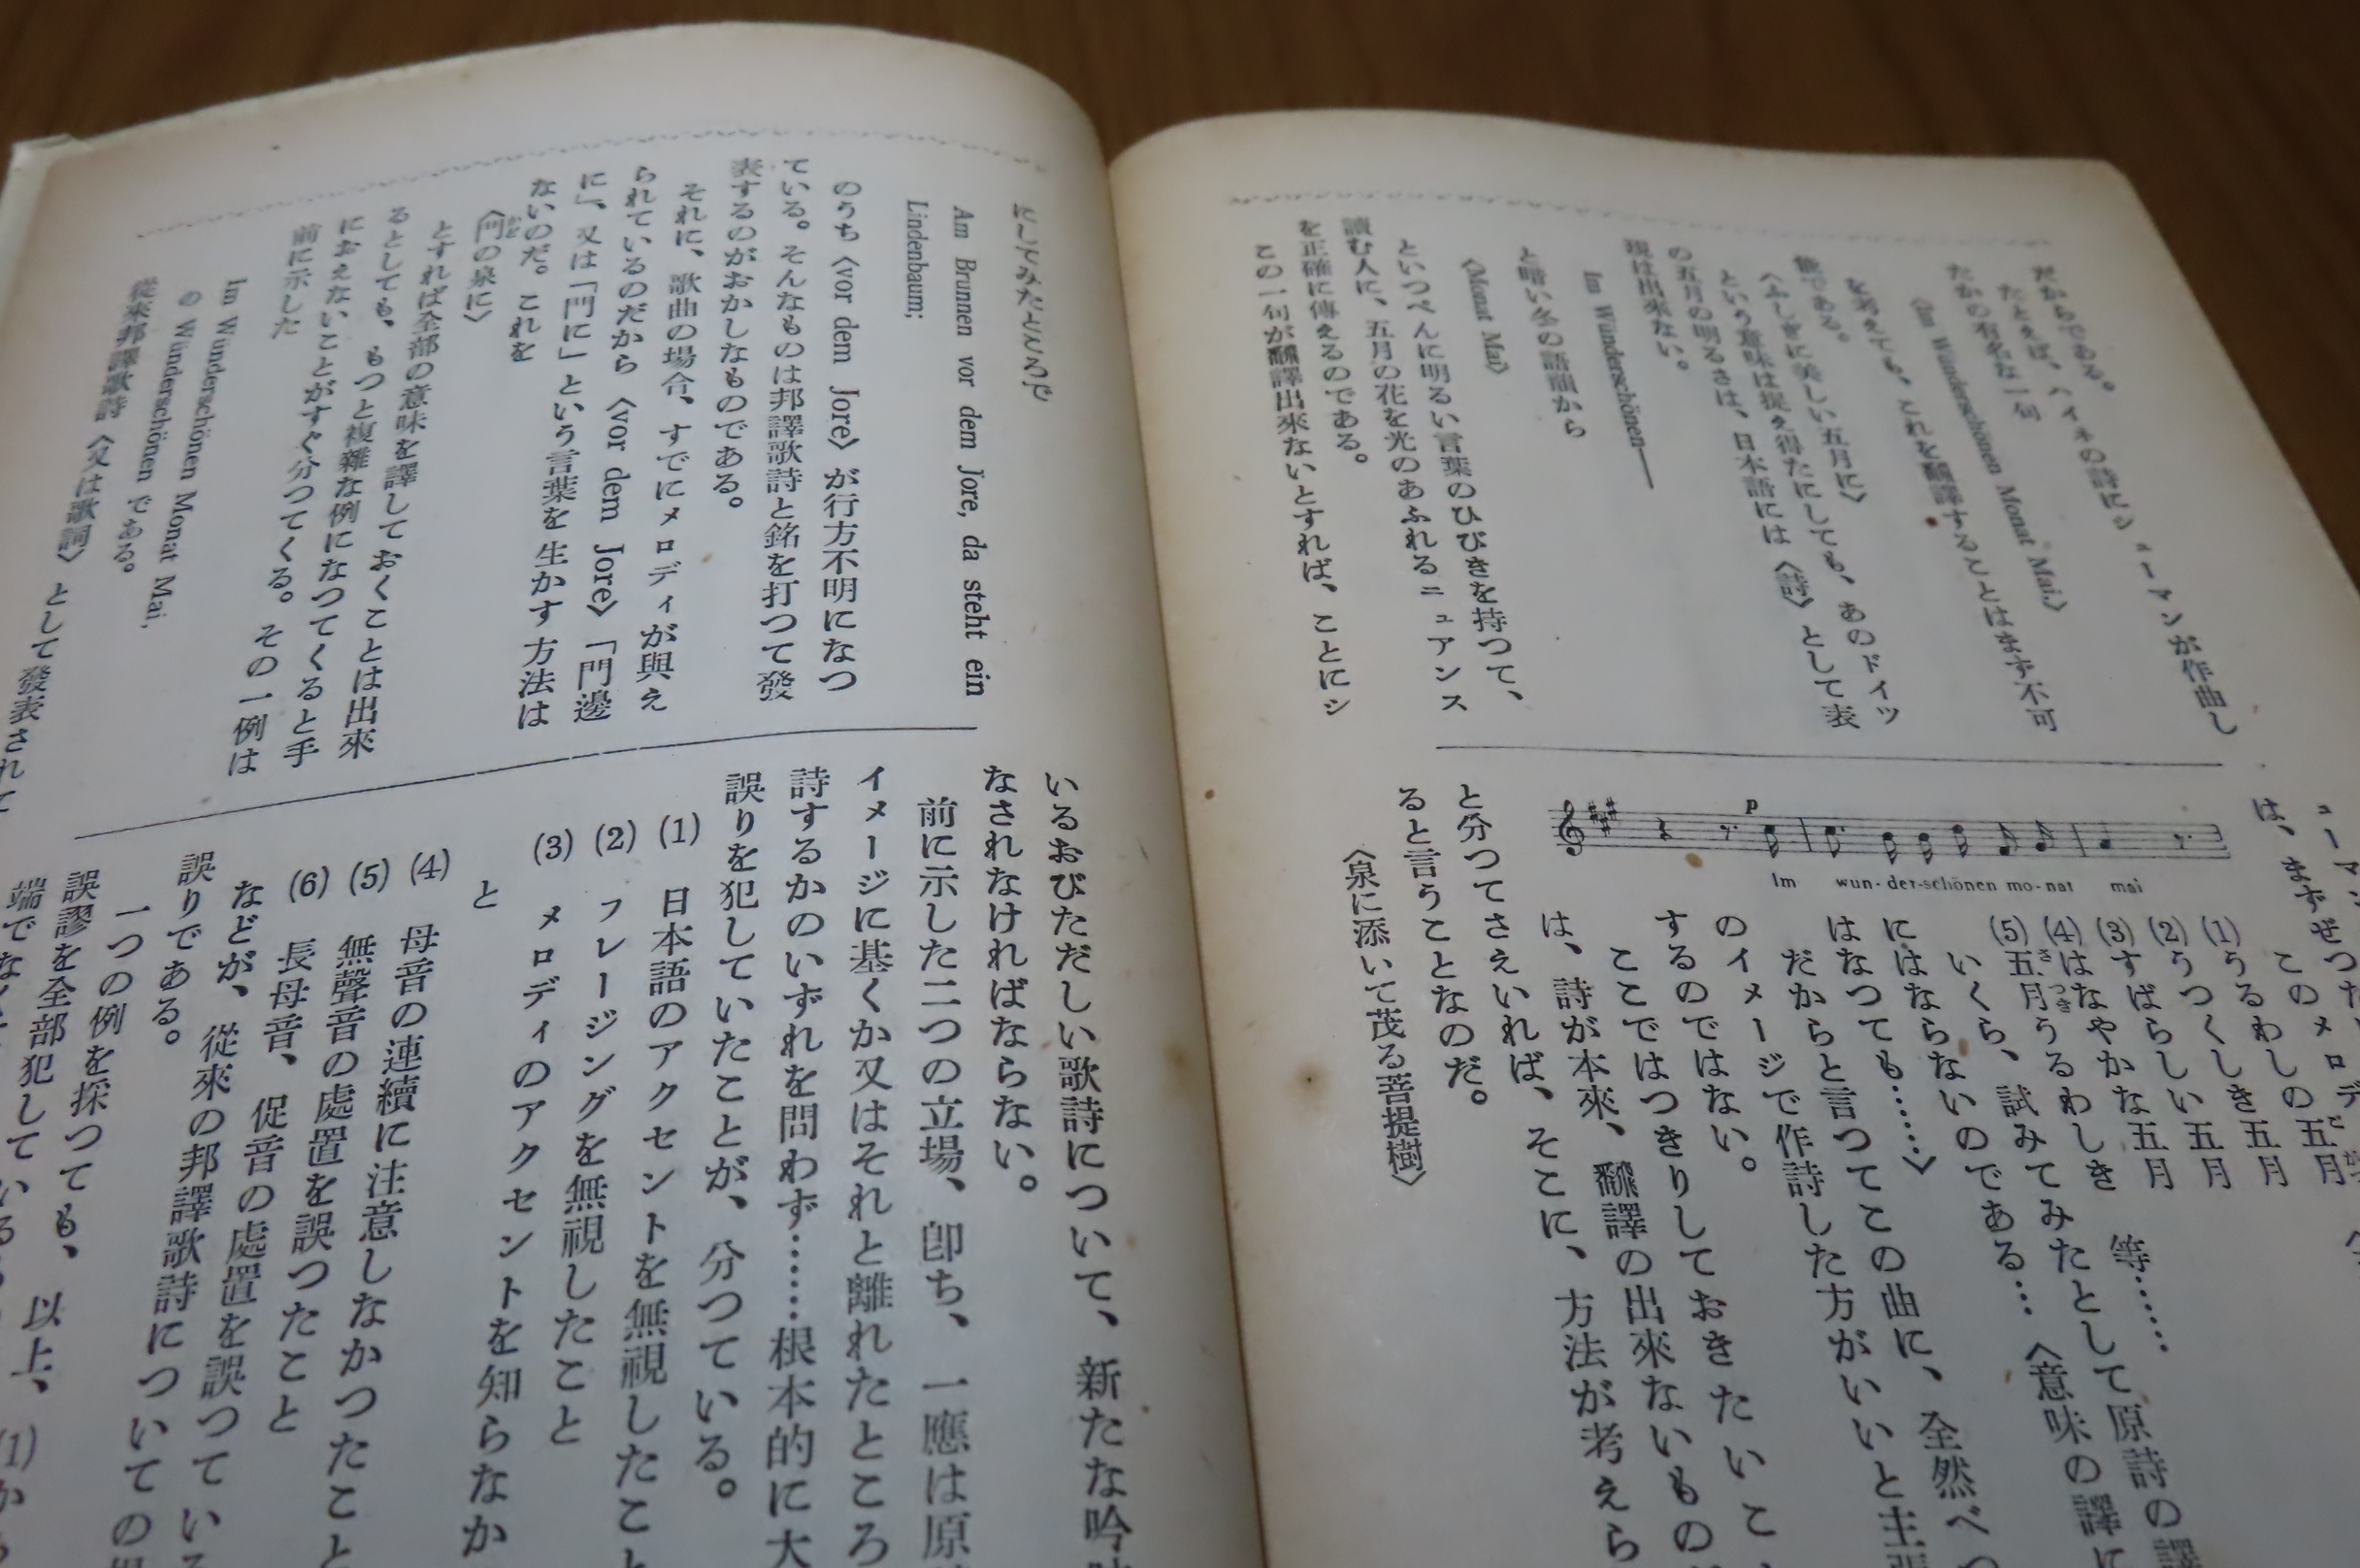 だからである。
たとえば、ハイネの詩にシューマンが作曲し
たかの有名な一句
〈Im Wünderschönen Monat Mai.〉
を考えても、これを飜譯することはまず不可
能である。
〈ふしぎに美しい五月に〉
という意味は捉え得たにしても、あのドイツ
の五月の明るさは、日本語には〈詩〉として表
現は出來ない。
Im Wünderschönen——
と暗い冬の語韻から
〈Monat Mai〉
といつぺんに明るい言葉のひびきを持つて、
讀む人に、五月の花を光のあふれるニュアンス
を正確に傳えるのである。
この一句が飜譯出來ないとすれば、ことにシ
ューマン
は、まずぜつた
p
Im wun-der-schönen mo-nat mai
このメロデ
(1)うるわしの五月
(2)うつくしき五月
(3)すばらしい五月
(4)はなやかな五月 等……
(5)五月うるわしき
いくら、試みてみたとして原詩の譯
にはならないのである…〈意味の譯に
はなつても……〉
だからと言つてこの曲に、全然べつ
のイメージで作詩した方がいいと主張
するのではない。
ここではつきりしておきたいこ
は、詩が本來、飜譯の出來ないもの
と分つてさえいれば、そこに、方法が考えら
ると言うことなのだ。
〈泉に添いて茂る菩提樹〉
にしてみたところで
Am Brunnen vor dem Jore, da steht ein
Lindenbaum;
のうち〈vor dem Jore〉が行方不明になつ
ている。そんなものは邦譯歌詩と銘を打つて發
表するのがおかしなものである。
それに、歌曲の場合、すでにメロディが與え
られているのだから〈vor dem Jore〉「門邊
に」、又は「門に」という言葉を生かす方法は
ないのだ。これを
〈門の泉に〉
とすれば全部の意味を譯しておくことは出來
るとしても、もつと複雜な例になつてくると手
におえないことがすぐ分つてくる。その一例は
前に示した
Im Wünderschönen Monat Mai.
の Wünderschönen である。
從來邦譯歌詩〈又は歌詞〉として發表されて
いるおびただしい歌詩について、新たな吟味
なされなければならない。
前に示した二つの立場、卽ち、一應は原
イメージに基くか又はそれと離れたところ
詩するかのいずれを問わず……根本的に大
誤りを犯していたことが、分つている。
(1) 日本語のアクセントを無視したこと
(2) フレージングを無視したこと
(3) メロディのアクセントを知らなか
と
(4) 母音の連續に注意しなかつたこと
(5) 無聲音の處置を誤つたこと
(6) 長母音、促音の處置を誤つている
などが、從來の邦譯歌詩についての
誤りである。
一つの例を採つても、以上、(1)か
誤謬を全部犯している
端でな